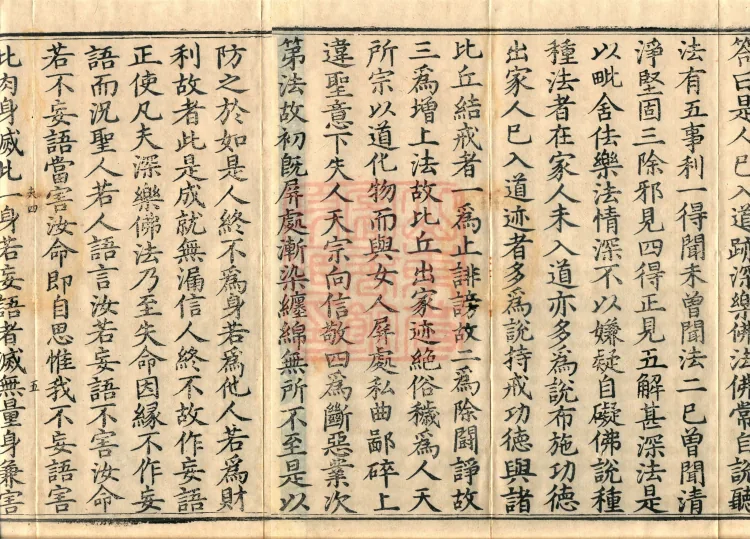 答曰是人已入道跡深樂佛法佛常自說聽
法有五事利一得聞未曾聞法二已曾聞清
淨堅固三除邪見四得正見五解甚深法是
以毗舍佉樂法情深不以嫌疑自礙佛說種
種法者在家人未入道亦多爲說布施功德
出家人已入道迹者多爲說持戒功德與諸
比丘結戒者一爲止誹謗故二爲除鬪諍故
三爲增上法故比丘出家迹絕俗穢爲人天
所宗以道化物而與女人屏處私曲鄙碎上
違聖意下失人天宗向信敬四爲斷惡業次
第法故初旣屏處漸染纏綿無所不至是以
防之於如是人終不爲身若爲他人若爲財
利故者此是成就無漏信人終不故作妄語
正使凡夫深樂佛法乃至失命因緣不作妄
語而況聖人若人語言汝若妄語不害汝命
若不妄語當害汝命即自思惟我不妄語害
五
此肉身滅此一身若妄語者滅無量身兼害